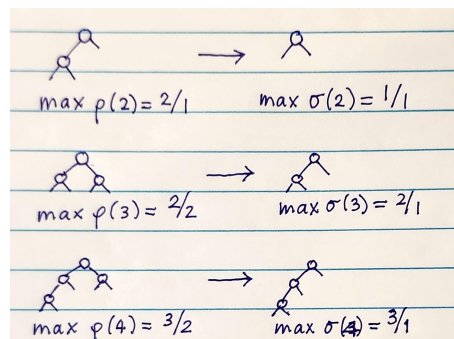 max ρ(2) = 2/1 → max σ(2) = 1/1
max ρ(3) = 2/2 → max σ(3) = 2/1
max ρ(4) = 3/2 → max σ(4) = 3/1